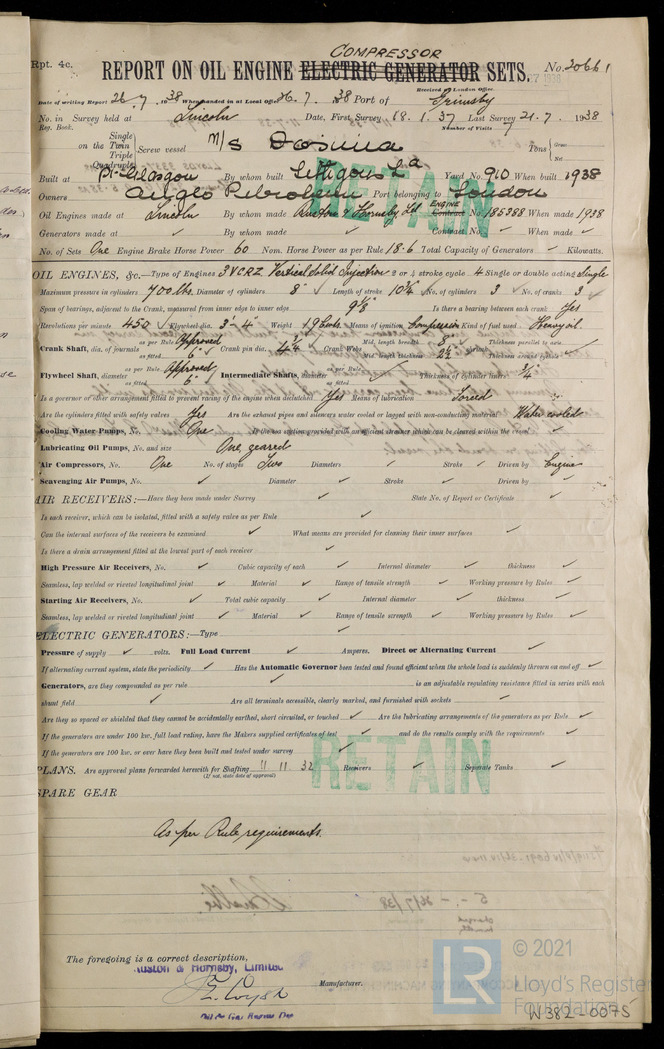 COMPRESSOR
Rpt. 4c. REPORT ON OIL ENGINE ELECTRIC GENERATOR SETS. No. 20661
Received at London Office
Date of writing Report 26.7.1938 When handed in at Local Office 26.7.1938 Port of Grimsby
No. in Survey held at Lincoln Date, First Survey 18.1.37 Last Survey 21.7.1938
Reg. Book. Number of Visits 7
Single
on the Twin Screw vessel M/s Dosinia Tons Gross Net
Triple
Quadruple
Built at Pt. Glasgow By whom built Lithgows Ld Yard No. 910 When built 1938
Owners Anglo Petroleum Port belonging to London
Oil Engines made at Lincoln By whom made Ruston & Hornsby Ltd ENGINE Contract No. 185388 When made 1938
Generators made at ✓ By whom made ✓ Contract No. ✓ When made ✓
No. of Sets One Engine Brake Horse Power 60 Nom. Horse Power as per Rule 18.6 Total Capacity of Generators ✓ Kilowatts.
OIL ENGINES, &c.—Type of Engines 3VCRZ Vertical Solid Injection 2 or 4 stroke cycle 4 Single or double acting Single
Maximum pressure in cylinders 700 lbs. Diameter of cylinders 8" Length of stroke 10¾" No. of cylinders 3 No. of cranks 3
Span of bearings, adjacent to the Crank, measured from inner edge to inner edge 9⅝" Is there a bearing between each crank Yes
Revolutions per minute 450 Flywheel dia. 3'-4" Weight 19 Cwts. Means of ignition Compression Kind of fuel used Heavy oil
Crank Shaft, dia. of journals as per Rule Approved as fitted 6" Crank pin dia. Crank Webs Mid. length breadth 8" Mid. length thickness Thickness parallel to axis Thickness around eyehole
Flywheel Shaft, diameter as per Rule Approved as fitted 6" Intermediate Shafts, diameter as per Rule as fitted Thickness of cylinder liners ¾"
Is a governor or other arrangement fitted to prevent racing of the engine when declutched Yes Means of lubrication Forced
Are the cylinders fitted with safety valves Yes Are the exhaust pipes and silencers water cooled or lagged with non-conducting material Water cooled
Cooling Water Pumps, No. One Is the sea suction provided with an efficient strainer which can be cleared within the vessel ✓
Lubricating Oil Pumps, No. and size One, geared
Air Compressors, No. One No. of stages Two Diameters ✓ Stroke ✓ Driven by Engine
Scavenging Air Pumps, No. ✓ Diameter ✓ Stroke ✓ Driven by ✓
AIR RECEIVERS:—Have they been made under Survey ✓ State No. of Report or Certificate ✓
Is each receiver, which can be isolated, fitted with a safety valve as per Rule ✓
Can the internal surfaces of the receivers be examined ✓ What means are provided for cleaning their inner surfaces ✓
Is there a drain arrangement fitted at the lowest part of each receiver ✓
High Pressure Air Receivers, No. ✓ Cubic capacity of each ✓ Internal diameter ✓ thickness ✓
Seamless, lap welded or riveted longitudinal joint ✓ Material ✓ Range of tensile strength ✓ Working pressure by Rules ✓
Starting Air Receivers, No. ✓ Total cubic capacity ✓ Internal diameter ✓ thickness ✓
Seamless, lap welded or riveted longitudinal joint ✓ Material ✓ Range of tensile strength ✓ Working pressure by Rules ✓
ELECTRIC GENERATORS:—Type ✓
Pressure of supply ✓ volts. Full Load Current ✓ Amperes. Direct or Alternating Current ✓
If alternating current system, state the periodicity ✓ Has the Automatic Governor been tested and found efficient when the whole load is suddenly thrown on and off ✓
Generators, are they compounded as per rule ✓ is an adjustable regulating resistance fitted in series with each
shunt field ✓ Are all terminals accessible, clearly marked, and furnished with sockets ✓
Are they so spaced or shielded that they cannot be accidentally earthed, short circuited, or touched ✓ Are the lubricating arrangements of the generators as per Rule ✓
If the generators are under 100 kw. full load rating, have the Makers supplied certificates of test ✓ and do the results comply with the requirements ✓
If the generators are 100 kw. or over have they been built and tested under survey ✓
PLANS. Are approved plans forwarded herewith for Shafting 11.11.32 Receivers ✓ Separate Tanks ✓
(If not, state date of approval)
SPARE GEAR
RETAIN
RETAIN
As per Rule requirements.
The foregoing is a correct description,
Ruston & Hornsby, Limited
Manufacturer.
© 2021
LR Lloyd's Register
Foundation
W382-0075